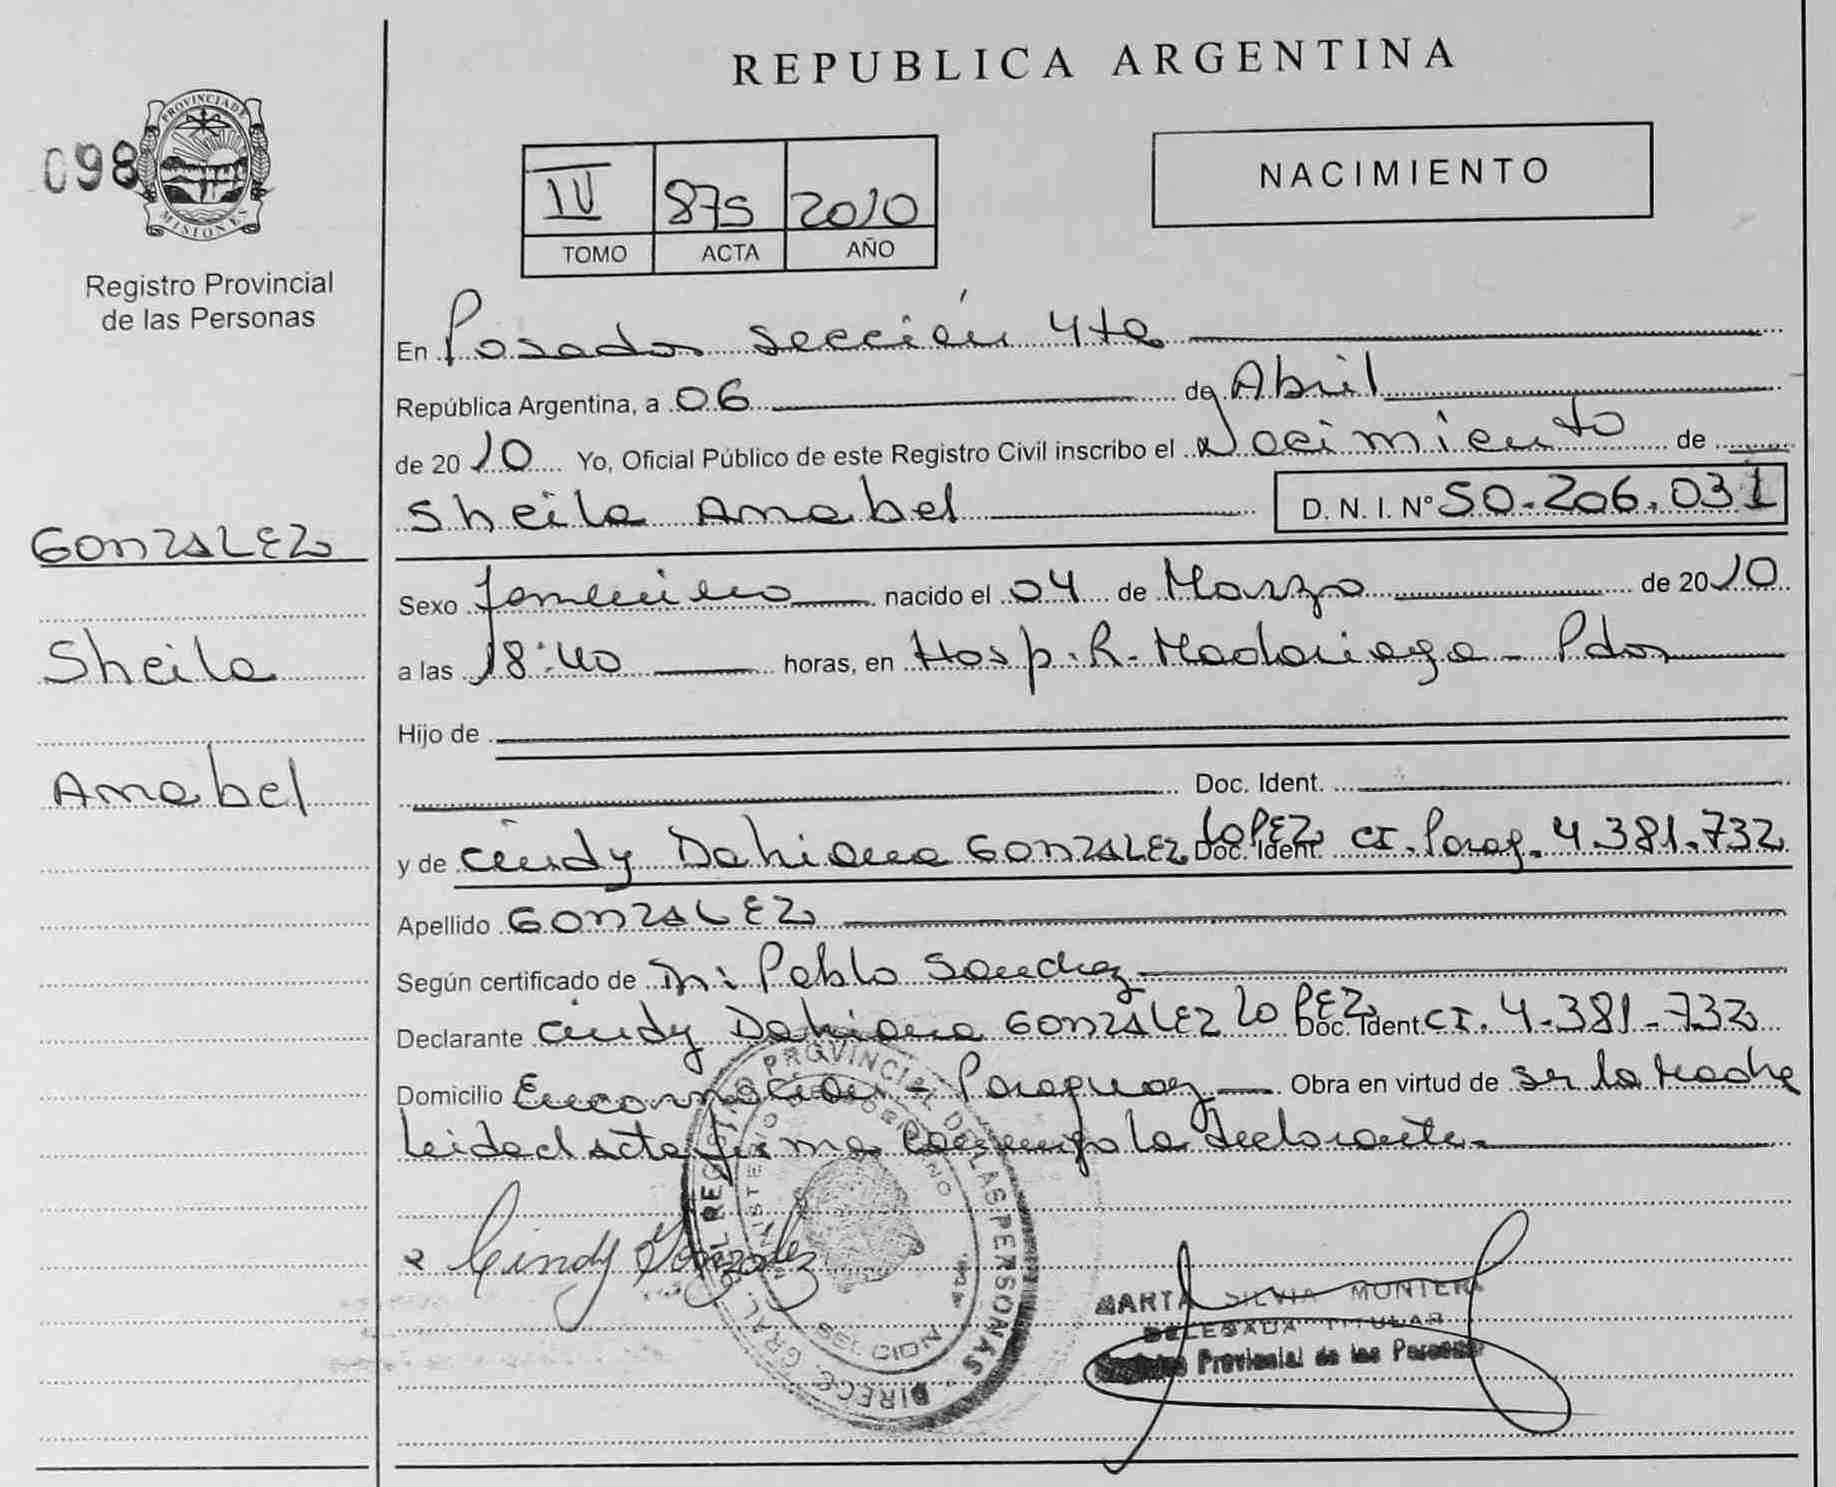 REPUBLICA ARGENTINA
098
PROVINCIA DE
MISIONES
Registro Provincial
de las Personas
IV 875 2010
TOMO ACTA AÑO
NACIMIENTO
En Posadas sección 4ta
República Argentina, a 06 de Abril
de 2010 Yo, Oficial Público de este Registro Civil inscribo el Nacimiento de
Sheila Anabel D. N. I. N° 50.206.031
GONZALEZ
Sheila
Anabel
Sexo femenino nacido el 04 de Marzo de 2010
a las 18:40 horas, en Hosp. R. Madariaga - Pdas
Hijo de
Doc. Ident.
y de Cindy Dahiana GONZALEZ LOPEZ Doc. Ident. CI. Parag. 4.381.732
Apellido GONZALEZ
Según certificado de Pablo Sanchez
Declarante Cindy Dahiana GONZALEZ LOPEZ Doc. Ident CI. 4.381.732
Domicilio Encarnación - Paraguay Obra en virtud de ser la Madre
leida el acta firma conmigo la declarante.
Cindy Gonzalez
DIRECC. GRAL. DEL REGISTRO PROVINCIAL DE LAS PERSONAS
MINISTERIO DE GOBIERNO
MARTA SILVIA MONTERO
DELEGADA TITULAR
Registro Provincial de las Personas